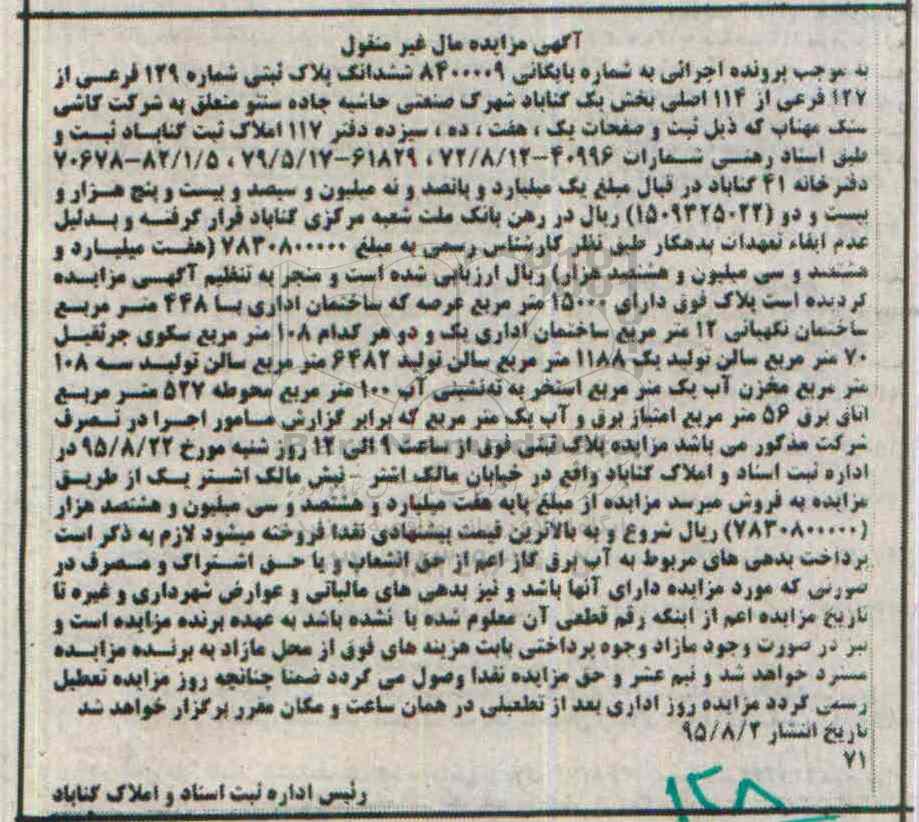 آگهی مزایده مال غیر منقول
به موجب پرونده اجرائی به شماره بایگانی ۸۴۰۰۰۰۹ ششدانگ پلاک ثبتی شماره ۱۲۹ فرعی از
۱۲۷ فرعی از ۱۱۴ اصلی بخش یک گناباد شهرک صنعتی حاشیه جاده سنتو متعلق به شرکت کاشی
سنگ مهتاب که ذیل ثبت و صفحات یک ، هفت ، ده ، سیزده دفتر ۱۱۷ املاک ثبت گناباد ثبت و
طبق اسناد رهنی شمارات ۴۰۹۹۶-۷۲/۸/۱۲ ، ۶۱۸۲۹-۷۹/۵/۱۷ ، ۸۲/۱/۵-۷۰۶۷۸
دفترخانه ۴۱ گناباد در قبال مبلغ یک میلیارد و پانصد و نه میلیون و سیصد و بیست و پنج هزار و
بیست و دو (۱۵۰۹۳۲۵۰۲۲) ریال در رهن بانک ملت شعبه مرکزی گناباد قرار گرفته و بدلیل
عدم ایفاء تعهدات بدهکار طبق نظر کارشناس رسمی به مبلغ ۷۸۳۰۸۰۰۰۰۰ (هفت میلیارد و
هشتصد و سی میلیون و هشتصد هزار) ریال ارزیابی شده است و منجر به تنظیم آگهی مزایده
گردیده است پلاک فوق دارای ۱۵۰۰۰ متر مربع عرصه که ساختمان اداری با ۴۴۸ متر مربع
ساختمان نگهبانی ۱۲ متر مربع ساختمان اداری یک و دو هر کدام ۱۰۸ متر مربع سکوی جرثقیل
۷۰ متر مربع سالن تولید یک ۱۱۸۸ متر مربع سالن تولید ۶۴۸۲ متر مربع سالن تولید سه ۱۰۸
متر مربع مخزن آب یک متر مربع استخر به ته‌نشینی آب ۱۰۰ متر مربع محوطه ۵۲۷ متر مربع
اتاق برق ۵۶ متر مربع امتیاز برق و آب یک متر مربع که برابر گزارش مامور اجرا در تصرف
شرکت مذکور می باشد مزایده پلاک ثبتی فوق از ساعت ۹ الی ۱۲ روز شنبه مورخ ۹۵/۸/۲۲ در
اداره ثبت اسناد و املاک گناباد واقع در خیابان مالک اشتر - نبش مالک اشتر یک از طریق
مزایده به فروش میرسد مزایده از مبلغ پایه هفت میلیارد و هشتصد و سی میلیون و هشتصد هزار
(۷۸۳۰۸۰۰۰۰۰) ریال شروع و به بالاترین قیمت پیشنهادی نقدا فروخته میشود لازم به ذکر است
پرداخت بدهی های مربوط به آب برق گاز اعم از حق انشعاب و یا حق اشتراک و مصرف در
صورتی که مورد مزایده دارای آنها باشد و نیز بدهی های مالیاتی و عوارض شهرداری و غیره تا
تاریخ مزایده اعم از اینکه رقم قطعی آن معلوم شده یا نشده باشد به عهده برنده مزایده است و
نیز در صورت وجود مازاد وجوه پرداختی بابت هزینه های فوق از محل مازاد به برنده مزایده
مسترد خواهد شد و نیم عشر و حق مزایده نقدا وصول می گردد ضمنا چنانچه روز مزایده تعطیل
رسمی گردد مزایده روز اداری بعد از تطعیلی در همان ساعت و مکان مقرر برگزار خواهد شد
تاریخ انتشار ۹۵/۸/۲
۷۱
رئیس اداره ثبت اسناد و املاک گناباد
۱۲۸